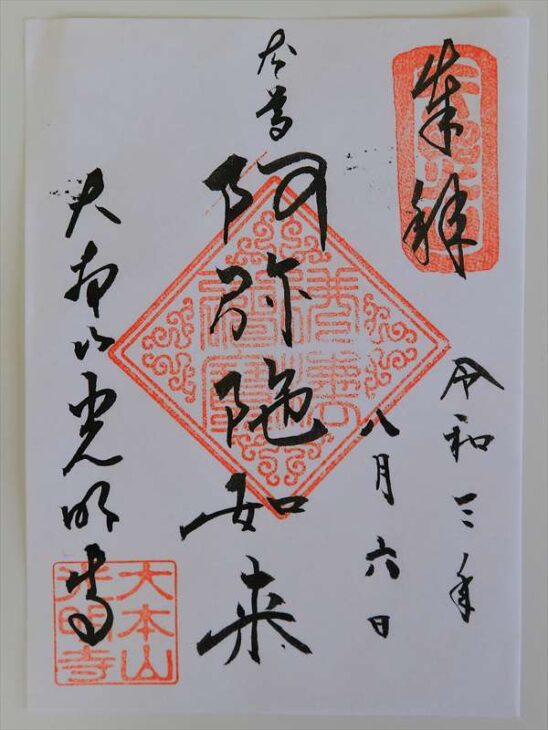 奉拝
令和三年
八月六日
本尊
阿弥陀如来
大本山光明寺
大本山
光明寺